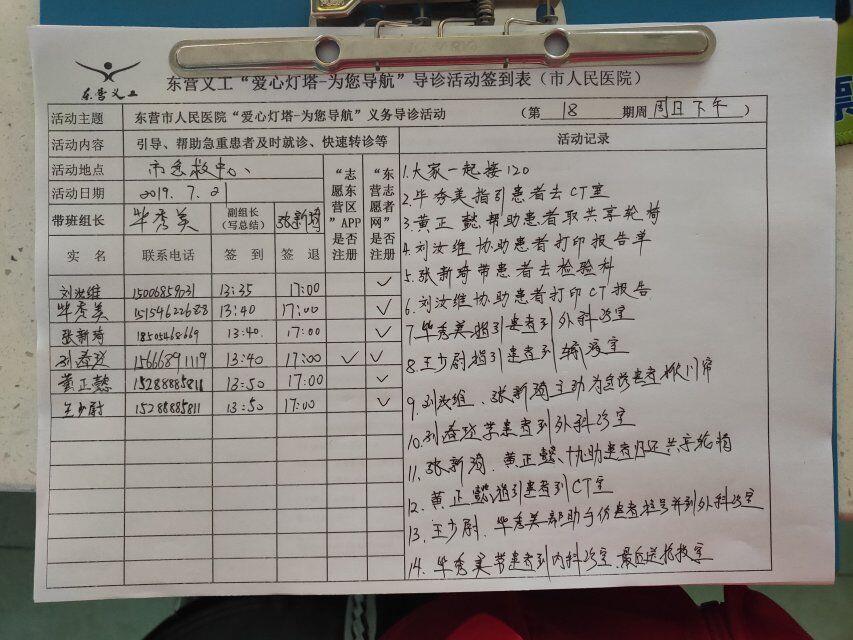 东营义工
东营义工“爱心灯塔-为您导航”导诊活动签到表（市人民医院）
活动主题 东营市人民医院“爱心灯塔-为您导航”义务导诊活动 （第 18 期周 周日下午 ）
活动内容 引导、帮助急重患者及时就诊、快速转诊等 活动记录
活动地点 市急救中心
活动日期 2019.7.21
带班组长 毕秀美 副组长（写总结） 张新琦
“志愿东营区”APP是否注册
“东营志愿者网”是否注册
实名 联系电话 签到 签退
刘汝维 15006859031 13:35 17:00 ✓
毕秀美 15154622688 13:40 17:00 ✓
张新琦 18505468669 13:40 17:00 ✓
15666891119 13:40 17:00 ✓ ✓
黄正懿 15288885811 13:50 17:00 ✓
王少尉 15288885811 13:50 17:00 ✓
1.大家一起接120
2.毕秀美指引患者去CT室
3.黄正懿帮助患者取共享轮椅
4.刘汝维协助患者打印报告单
5.张新琦带患者去检验科
6.刘汝维协助患者打印CT报告
7.毕秀美指引患者到外科诊室
8.王少尉指引患者到输液室
9.刘汝维、张新琦主动为急诊患者掀门帘
10.患者到外科诊室
11.张新琦、黄正懿协助患者归还共享轮椅
12.黄正懿指引患者到CT室
13.王少尉、毕秀美帮助手伤患者挂号并到外科诊室
14.毕秀美带患者到内科诊室,最后送抢救室